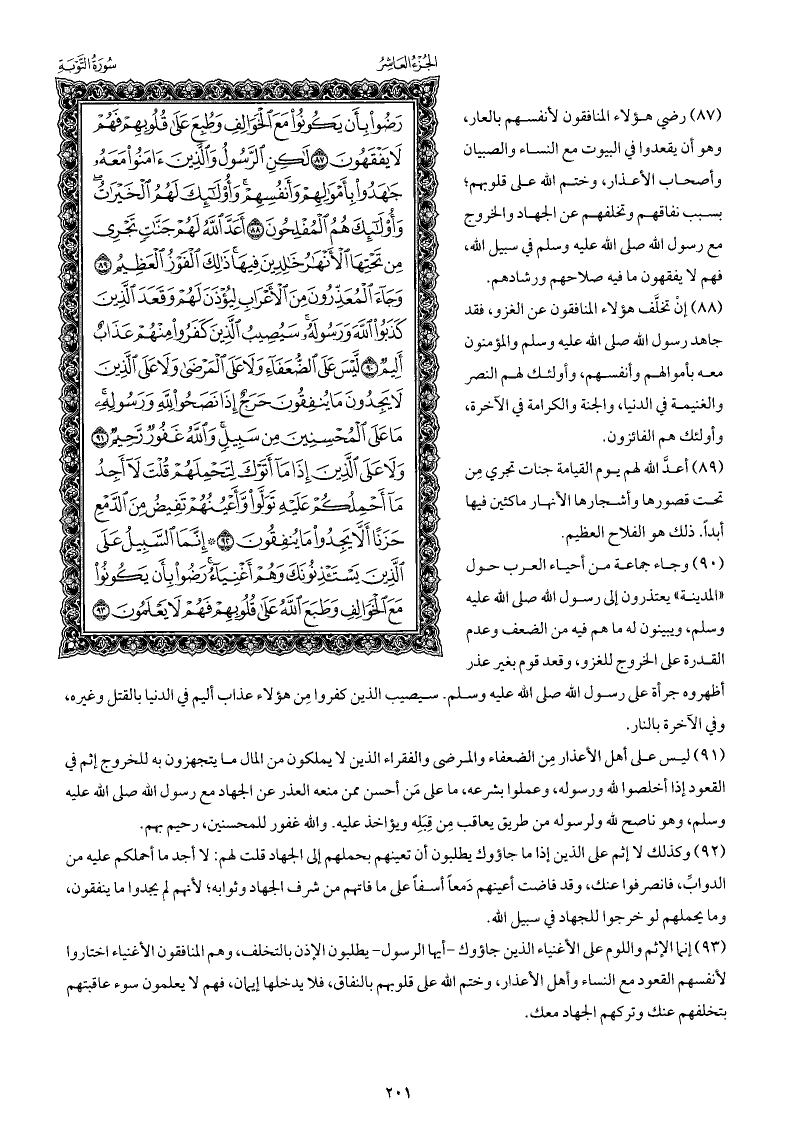 الجزء العاشر
سورة التوبة
رَضُوا۟ بِأَن يَكُونُوا۟ مَعَ ٱلْخَوَالِفِ وَطُبِعَ عَلَىٰ قُلُوبِهِمْ فَهُمْ
لَا يَفْقَهُونَ ٨٧ لَٰكِنِ ٱلرَّسُولُ وَٱلَّذِينَ ءَامَنُوا۟ مَعَهُۥ
جَٰهَدُوا۟ بِأَمْوَٰلِهِمْ وَأَنفُسِهِمْ ۚ وَأُو۟لَٰٓئِكَ لَهُمُ ٱلْخَيْرَٰتُ ۖ
وَأُو۟لَٰٓئِكَ هُمُ ٱلْمُفْلِحُونَ ٨٨ أَعَدَّ ٱللَّهُ لَهُمْ جَنَّٰتٍ تَجْرِى
مِن تَحْتِهَا ٱلْأَنْهَٰرُ خَٰلِدِينَ فِيهَا ۚ ذَٰلِكَ ٱلْفَوْزُ ٱلْعَظِيمُ ٨٩
وَجَآءَ ٱلْمُعَذِّرُونَ مِنَ ٱلْأَعْرَابِ لِيُؤْذَنَ لَهُمْ وَقَعَدَ ٱلَّذِينَ
كَذَبُوا۟ ٱللَّهَ وَرَسُولَهُۥ ۚ سَيُصِيبُ ٱلَّذِينَ كَفَرُوا۟ مِنْهُمْ عَذَابٌ
أَلِيمٌ ٩٠ لَّيْسَ عَلَى ٱلضُّعَفَآءِ وَلَا عَلَى ٱلْمَرْضَىٰ وَلَا عَلَى ٱلَّذِينَ
لَا يَجِدُونَ مَا يُنفِقُونَ حَرَجٌ إِذَا نَصَحُوا۟ لِلَّهِ وَرَسُولِهِۦ ۚ
مَا عَلَى ٱلْمُحْسِنِينَ مِن سَبِيلٍ ۚ وَٱللَّهُ غَفُورٌ رَّحِيمٌ ٩١
وَلَا عَلَى ٱلَّذِينَ إِذَا مَآ أَتَوْكَ لِتَحْمِلَهُمْ قُلْتَ لَآ أَجِدُ
مَآ أَحْمِلُكُمْ عَلَيْهِ تَوَلَّوا۟ وَّأَعْيُنُهُمْ تَفِيضُ مِنَ ٱلدَّمْعِ
حَزَنًا أَلَّا يَجِدُوا۟ مَا يُنفِقُونَ ٩٢ ۞ إِنَّمَا ٱلسَّبِيلُ عَلَى
ٱلَّذِينَ يَسْتَـْٔذِنُونَكَ وَهُمْ أَغْنِيَآءُ ۚ رَضُوا۟ بِأَن يَكُونُوا۟
مَعَ ٱلْخَوَالِفِ وَطَبَعَ ٱللَّهُ عَلَىٰ قُلُوبِهِمْ فَهُمْ لَا يَعْلَمُونَ ٩٣
(٨٧) رضي هؤلاء المنافقون لأنفسهم بالعار،
وهو أن يقعدوا في البيوت مع النساء والصبيان
وأصحاب الأعذار، وختم الله على قلوبهم؛
بسبب نفاقهم وتخلفهم عن الجهاد والخروج
مع رسول الله صلى الله عليه وسلم في سبيل الله،
فهم لا يفقهون ما فيه صلاحهم ورشادهم.
(٨٨) إنْ تخلَّف هؤلاء المنافقون عن الغزو، فقد
جاهد رسول الله صلى الله عليه وسلم والمؤمنون
معه بأموالهم وأنفسهم، وأولئك لهم النصر
والغنيمة في الدنيا، والجنة والكرامة في الآخرة،
وأولئك هم الفائزون.
(٨٩) أعدَّ الله لهم يوم القيامة جنات تجري مِن
تحت قصورها وأشجارها الأنهار ماكثين فيها
أبداً. ذلك هو الفلاح العظيم.
(٩٠) وجاء جماعة من أحياء العرب حول
«المدينة» يعتذرون إلى رسول الله صلى الله عليه
وسلم، ويبينون له ما هم فيه من الضعف وعدم
القدرة على الخروج للغزو، وقعد قوم بغير عذر
أظهروه جرأة على رسول الله صلى الله عليه وسلم. سيصيب الذين كفروا مِن هؤلاء عذاب أليم في الدنيا بالقتل وغيره،
وفي الآخرة بالنار.
(٩١) ليس على أهل الأعذار مِن الضعفاء والمرضى والفقراء الذين لا يملكون من المال ما يتجهزون به للخروج إثم في
القعود إذا أخلصوا لله ورسوله، وعملوا بشرعه، ما على مَن أحسن ممن منعه العذر عن الجهاد مع رسول الله صلى الله عليه
وسلم، وهو ناصح لله ولرسوله من طريق يعاقب مِن قِبَلِه ويؤاخذ عليه. والله غفور للمحسنين، رحيم بهم.
(٩٢) وكذلك لا إثم على الذين إذا ما جاؤوك يطلبون أن تعينهم بحملهم إلى الجهاد قلت لهم: لا أجد ما أحملكم عليه من
الدوابِّ، فانصرفوا عنك، وقد فاضت أعينهم دَمعاً أسفاً على ما فاتهم من شرف الجهاد وثوابه؛ لأنهم لم يجدوا ما ينفقون،
وما يحملهم لو خرجوا للجهاد في سبيل الله.
(٩٣) إنما الإثم واللوم على الأغنياء الذين جاؤوك -أيها الرسول- يطلبون الإذن بالتخلف، وهم المنافقون الأغنياء اختاروا
لأنفسهم القعود مع النساء وأهل الأعذار، وختم الله على قلوبهم بالنفاق، فلا يدخلها إيمان، فهم لا يعلمون سوء عاقبتهم
بتخلفهم عنك وتركهم الجهاد معك.
٢٠١